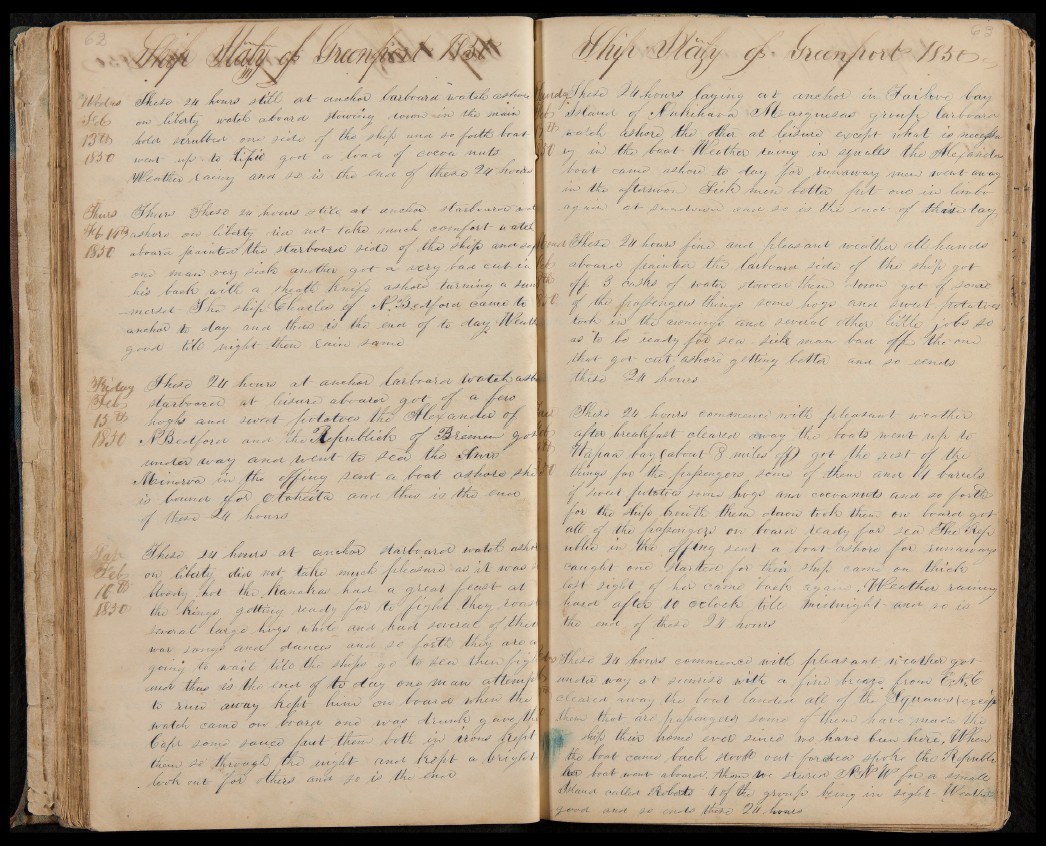 62
Ship Neva of Greenport 1850
Wednes These 24 hours still at anchor larboard watch ashore
Feb on liberty watch aboard stowing down in the main
13th hold scrubbed one side of the ship and so forth boat
1850 went up to and got a load of cocoa nuts
Weather rainy and so is the end of these 24 hours
Thurs Thurs These 24 hours still at anchor starboard
Feb 14th ashore on liberty did not take much comfort watch
1850 aboard painted the starboard side of the ship and
one man very sick another got a very bad cut in
his back with a sheath knife ashore turning a
The ship Charles of N. Bedford came to
anchor to day and thus is the end of to day Weath
good till night then rain same
Friday These 24 hours at anchor larboard watch ash
Feb starboard at leisure aboard got of a few
15th hogs and sweet potatoes the Alexander of
1850 N Bedford and the Republick of Bremen got
under way and went to sea the
Minerva in the offing sent a boat ashore she
is bound for Otaheita and thus is the end
of these 24 hours
Sat These 24 hours at anchor starboard watch asho
Feb on liberty did not take much pleasure as it was
16th bloody hot the Kanakas had a great feast at
1850 the Kings getting ready for to fight they
several large hogs whole and had several of their
war songs and dances and so forth they are
going to wait till the ships go to sea then fig
and thus is the end of to day one man attemp
to run away kept him on board when the
watch came on board one was drunk gave the
Capt some sauce put them both in irons kept
them so through the night and kept a bright
look out for others and so is the end
63
Ship Neva of Greenport 1850
These 24 hours laying at anchor in bay
Island of Nukehava Marquesas group larboard
watch ashore the other at leisure except what is
in the boat Weather rainy in squalls the Alexander
boat came ashore to day for runaway men went away
in the afternoon Sick men better put one in limbo
again at sundown and so is the end of this day
These 24 hours fine and pleasant weather all hands
aboard painted the larboard side of the ship got
off 3 casks of water stowed them down got of some
of the passengers things some hogs and sweet potatoes
took in the awnings and several other little jobs so
as to be ready for sea sick man bad off the one
that got cut ashore getting better and so eends
these 24 hours
These 24 hours commence with pleasant weather
after breakfast cleared away the boats went up to
bay (about 8 miles off) got the rest of the
things for the passengers some of them and 4 barrels
of sweet potatoes some hogs and cocoanuts and so forth
for the ship them down took them on board got
all of the passengers on board ready for sea The Rep
ublic in the offing sent a boat ashore for runaways
caught one started for their ship came on thick
lost sight of her came back again. Weather raining
hard after 10 oclock till midnight and so is
the end of these 24 hours
These 24 hours commence with pleasant weather got
under way at sunrise with a fine breeze from ENE
cleared away the boat landed all of the Squaws except
them that are passengers some of them have made the
ship their home ever since we have been here. When
the boat came back stood out for sea spoke the Republic
boat went aboard them we steered for a small
Island called Roberts 1 of the group being in sight Weather
good and so ends these 24 hours